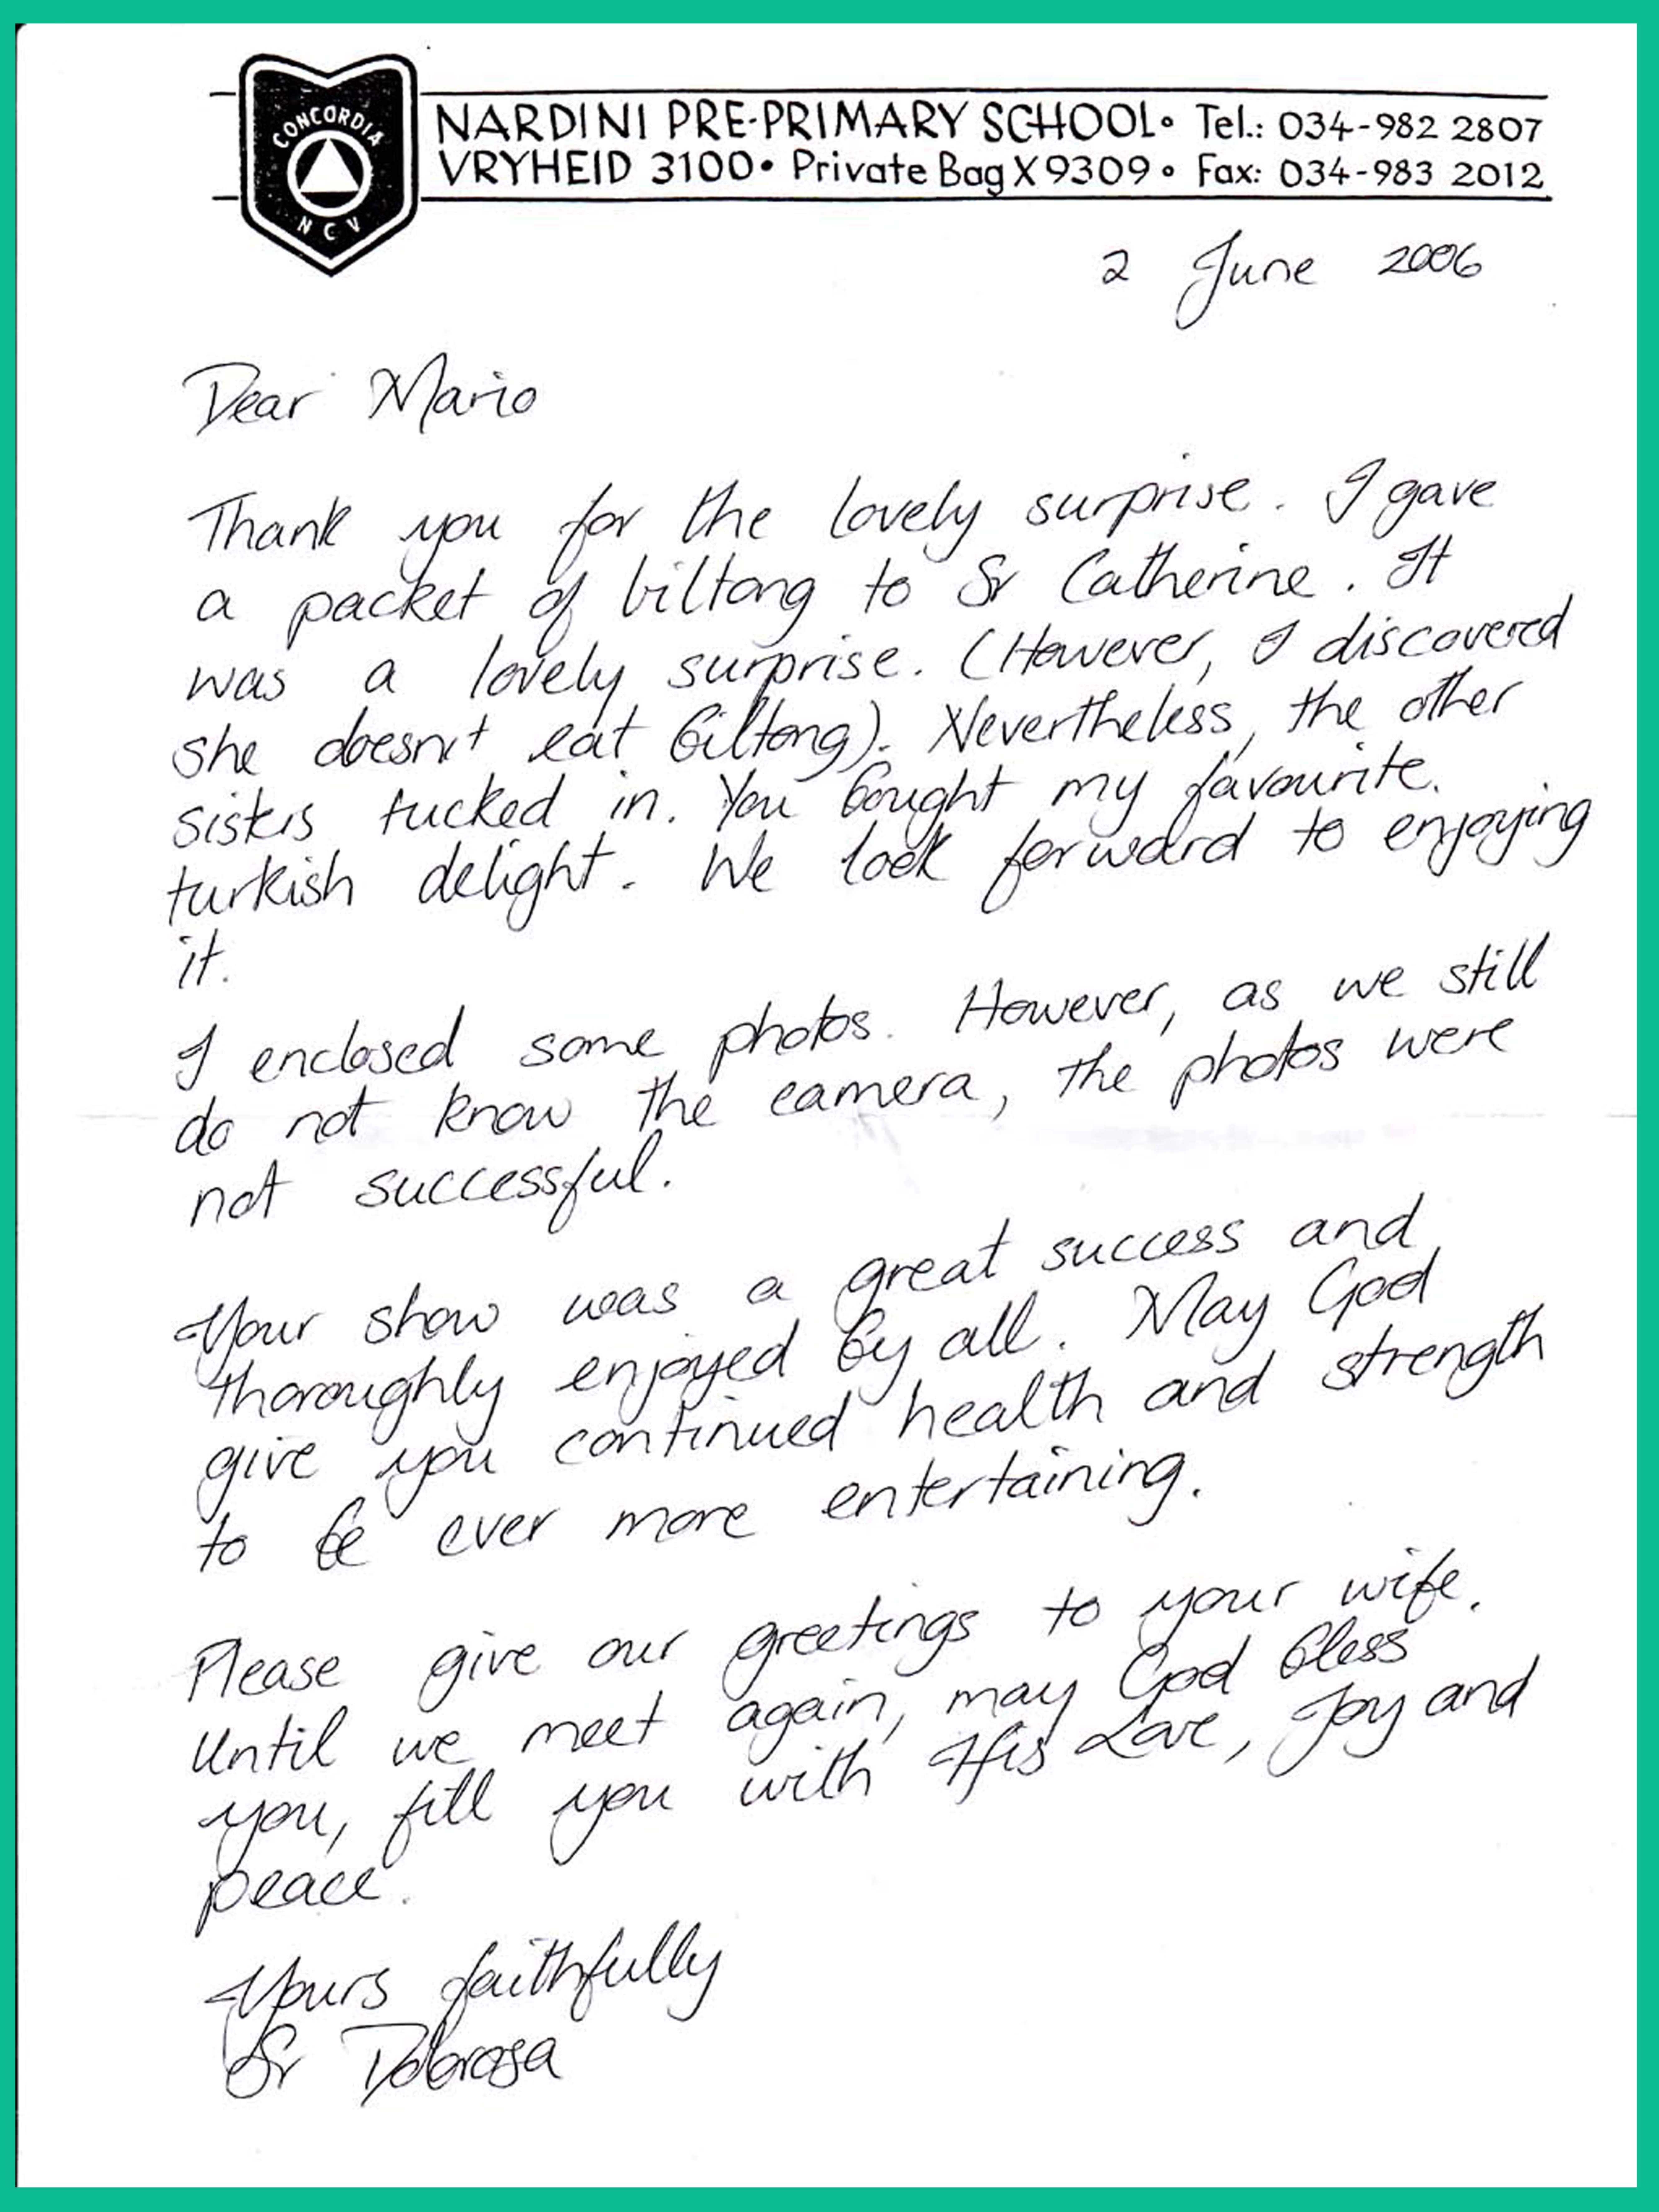 CONCORDIA
N C V
NARDINI PRE-PRIMARY SCHOOL• Tel.: 034-982 2807
VRYHEID 3100• Private Bag X9309• Fax: 034-983 2012
2 June 2006
Dear Mario
Thank you for the lovely surprise. I gave
a packet of biltong to Sr Catherine. It
was a lovely surprise. (However, I discovered
she doesn't eat biltong). Nevertheless, the other
sisters tucked in. You bought my favourite.
turkish delight. We look forward to enjoying
it.
I enclosed some photos. However, as we still
do not know the camera, the photos were
not successful.
Your show was a great success and
thoroughly enjoyed by all. May God
give you continued health and strength
to be ever more entertaining.
Please give our greetings to your wife.
Until we meet again, may God bless
you, fill you with His Love, Joy and
peace.
Yours faithfully
Sr Dolorosa